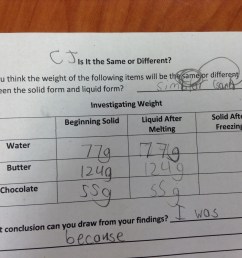 CJ
Is It the Same or Different?
u think the weight of the following items will be the same or different
een the solid form and liquid form?
Investigating Weight
Beginning Solid Liquid After Melting Solid Afte Freezing
Water 77g 77g
Butter 124g 124g
Chocolate 55g 55g
t conclusion can you draw from your findings? I was
because